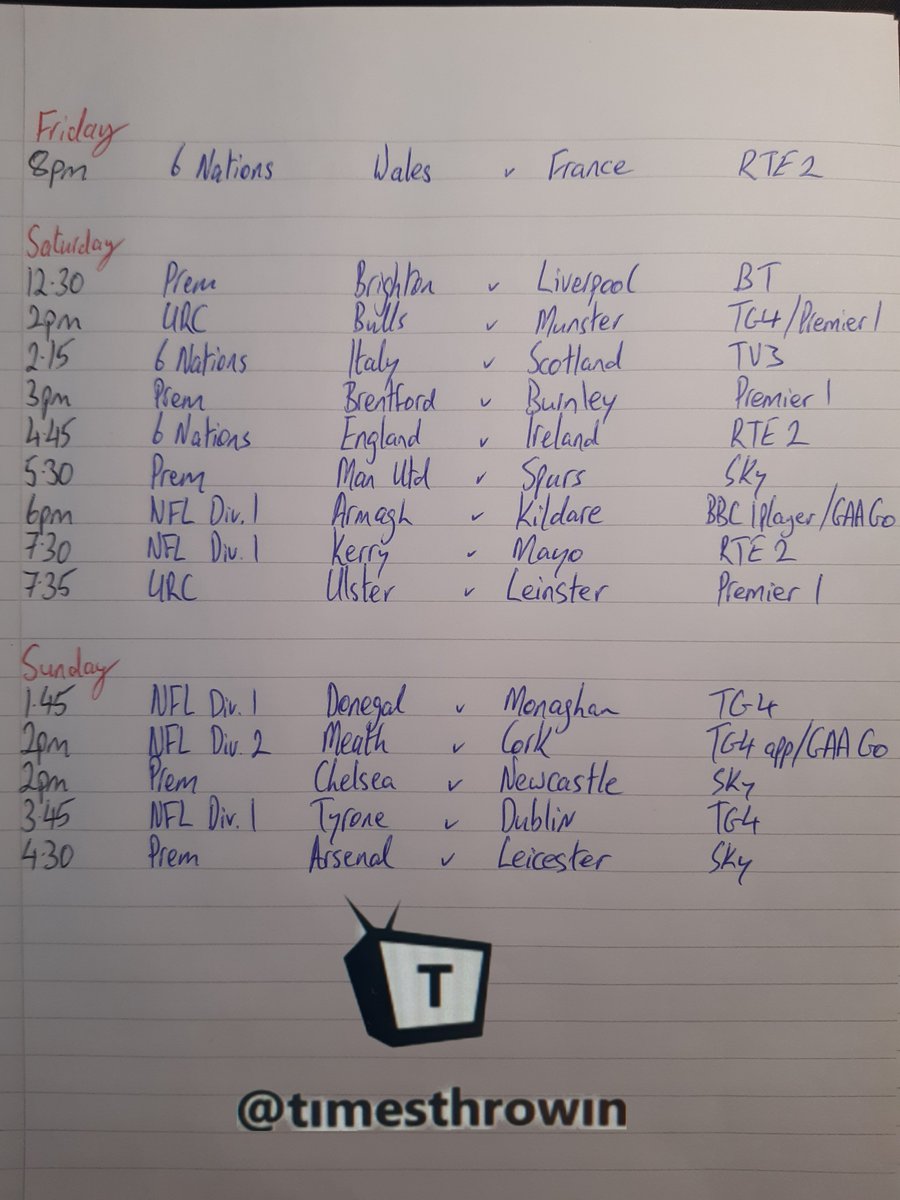 Friday
8pm 6 Nations Wales v France RTE 2
Saturday
12.30 Prem Brighton v Liverpool BT
2pm URC Bulls v Munster TG4/Premier 1
2.15 6 Nations Italy v Scotland TV3
3pm Prem Brentford v Burnley Premier 1
4.45 6 Nations England v Ireland RTE 2
5.30 Prem Man Utd v Spurs Sky
6pm NFL Div. 1 Armagh v Kildare BBC iplayer/GAA Go
7.30 NFL Div. 1 Kerry v Mayo RTE 2
7.35 URC Ulster v Leinster Premier 1
Sunday
1.45 NFL Div. 1 Donegal v Monaghan TG4
2pm NFL Div. 2 Meath v Cork TG4 app/GAA Go
2pm Prem Chelsea v Newcastle Sky
3.45 NFL Div. 1 Tyrone v Dublin TG4
4.30 Prem Arsenal v Leicester Sky
T
@timesthrowin